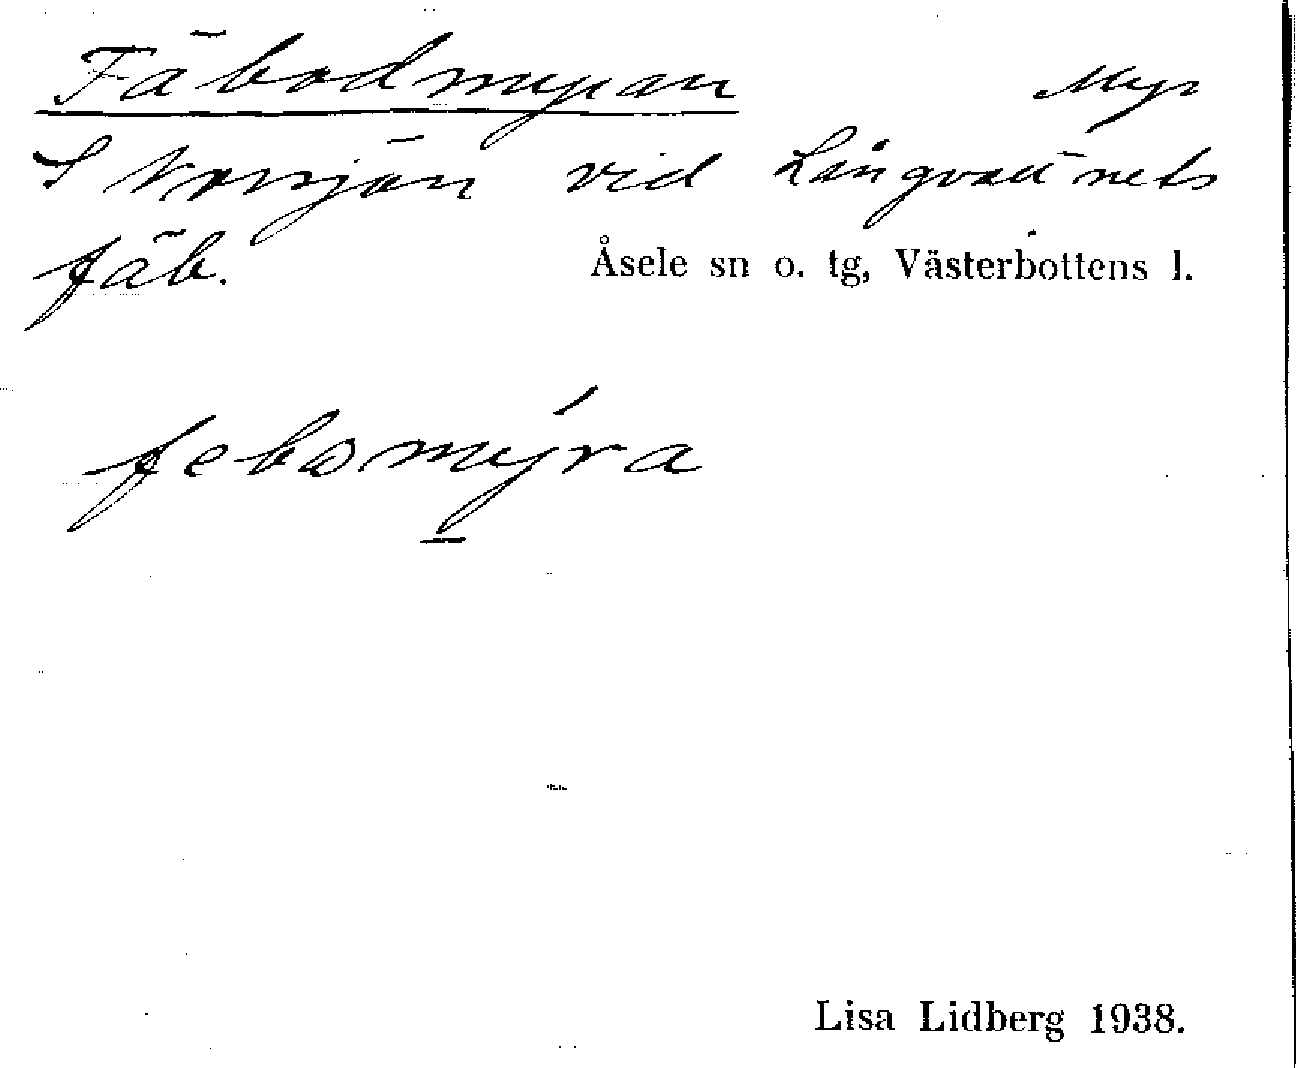 Fäbodmyran Myr
S Norrsjön vid Långvattnets
fäb. Åsele sn o. tg, Västerbottens l.
febomýra
Lisa Lidberg 1938.